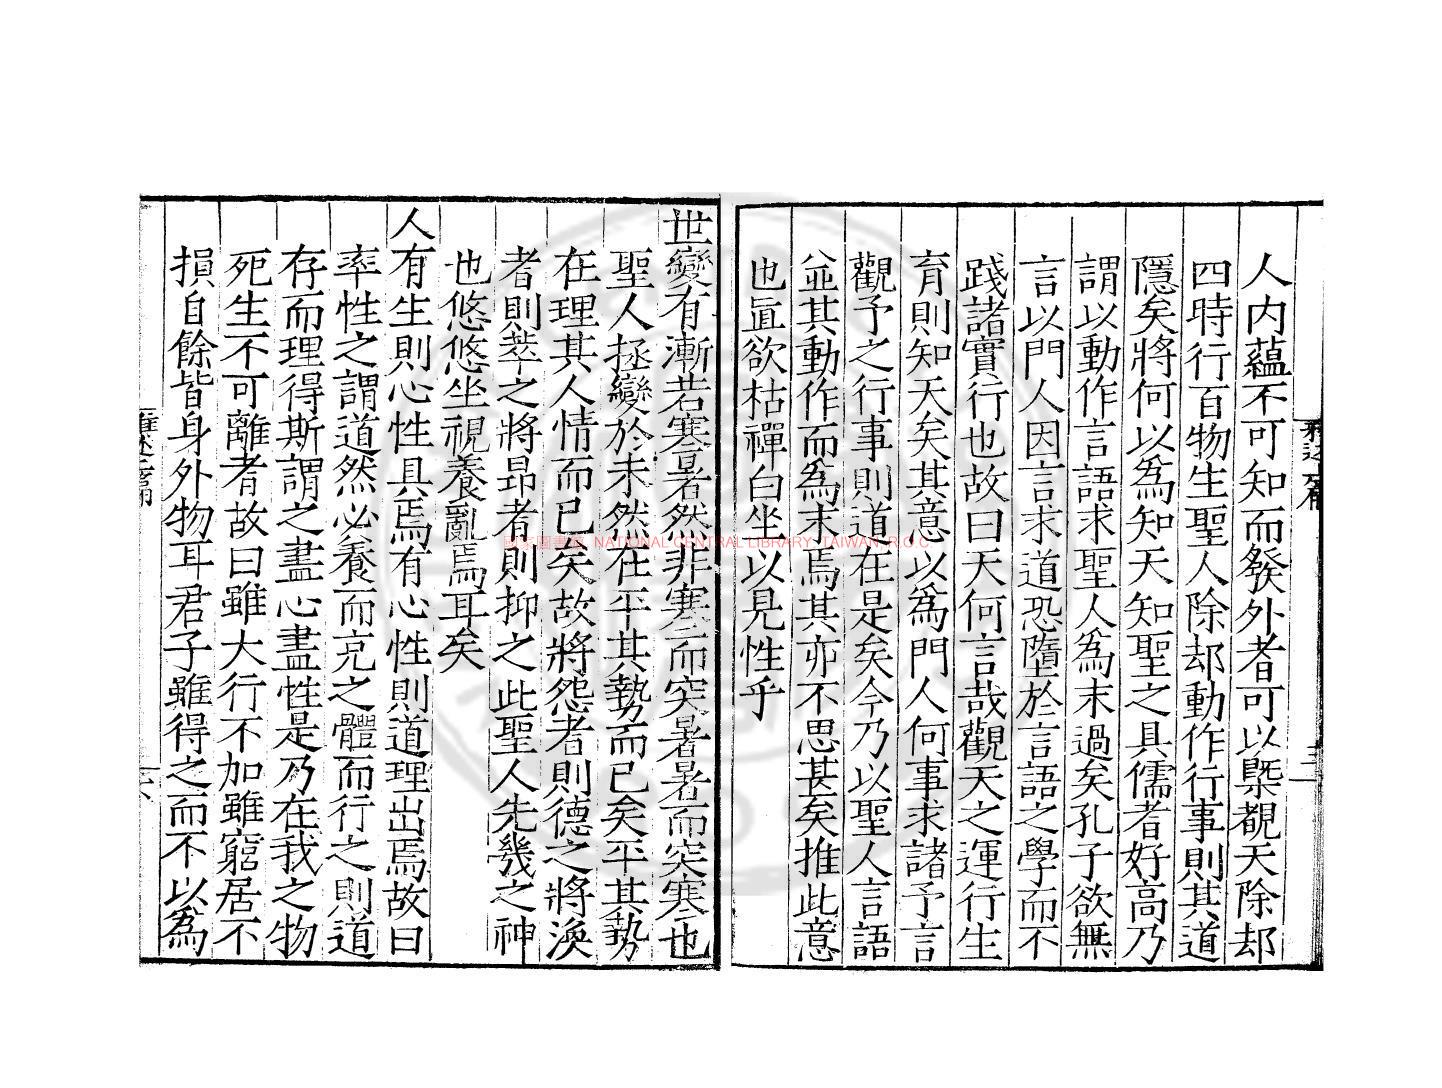 人内蘊不可知而發外者可以槩覩天除却
四時行百物生聖人除却動作行事則其道
隱矣將何以為知天知聖之具儒者好高乃
謂以動作言語求聖人為末過矣孔子欲無
言以門人因言求道恐墮於言語之學而不
踐諸實行也故曰天何言哉觀天之運行生
育則知天矣其意以為門人何事求諸予言
觀予之行事則道在是矣今乃以聖人言語
並其動作而為末焉其亦不思甚矣推此意
也直欲枯禪白坐以見性乎
世變有漸若寒暑然非寒而突暑暑而突寒也
聖人拯變於未然在平其勢而已矣平其勢
在理其人情而已矣故將怨者則德之將渙
者則萃之將昂者則抑之此聖人先幾之神
也悠悠坐視養亂焉耳矣
人有生則心性具焉有心性則道理出焉故曰
率性之謂道然必養而充之體而行之則道
存而理得斯謂之盡心盡性是乃在我之物
死生不可離者故曰雖大行不加雖窮居不
損自餘皆身外物耳君子雖得之而不以為
國家圖書館 NATIONAL CENTRAL LIBRARY, TAIWAN, R.O.C